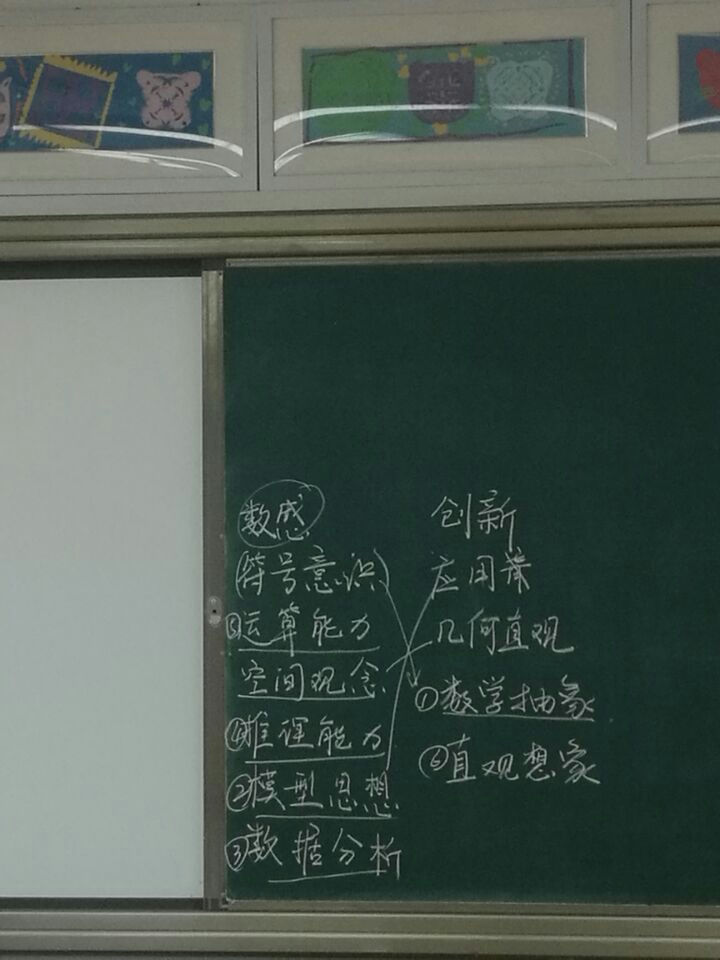 数感
(符号意识)
⑤运算能力
空间观念
④推理能力
②模型思想
③数据分析
创新
应用
几何直观
①数学抽象
⑥直观想象